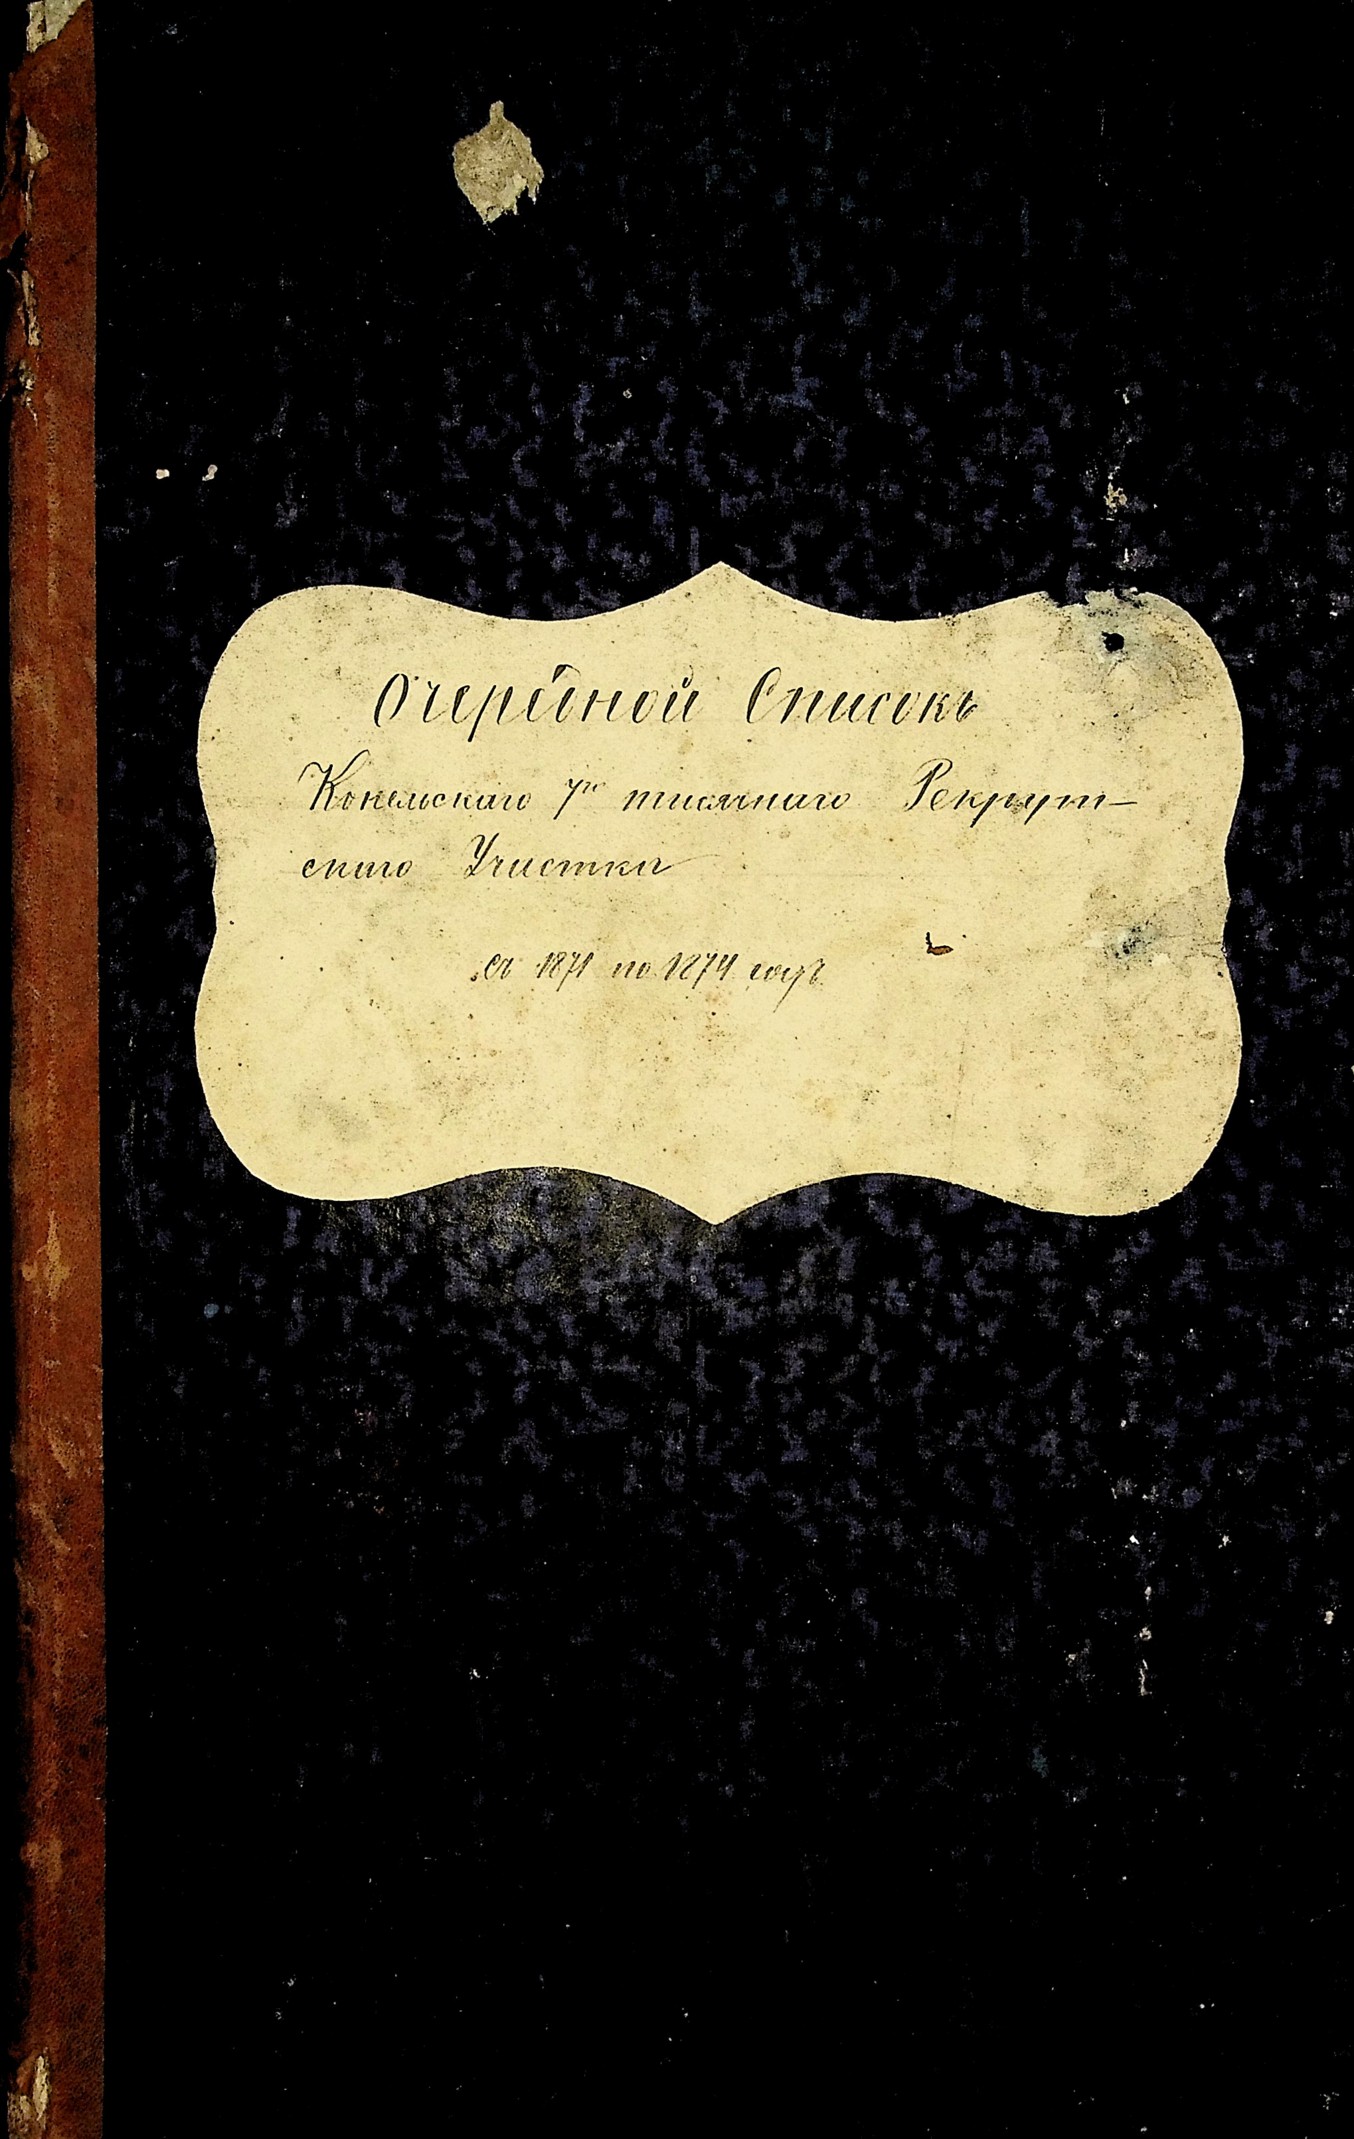 Очередной Списокъ
Конельскаго 7ми тысячнаго Рекрут-
скаго Участка
съ 1871 по 1874 годъ